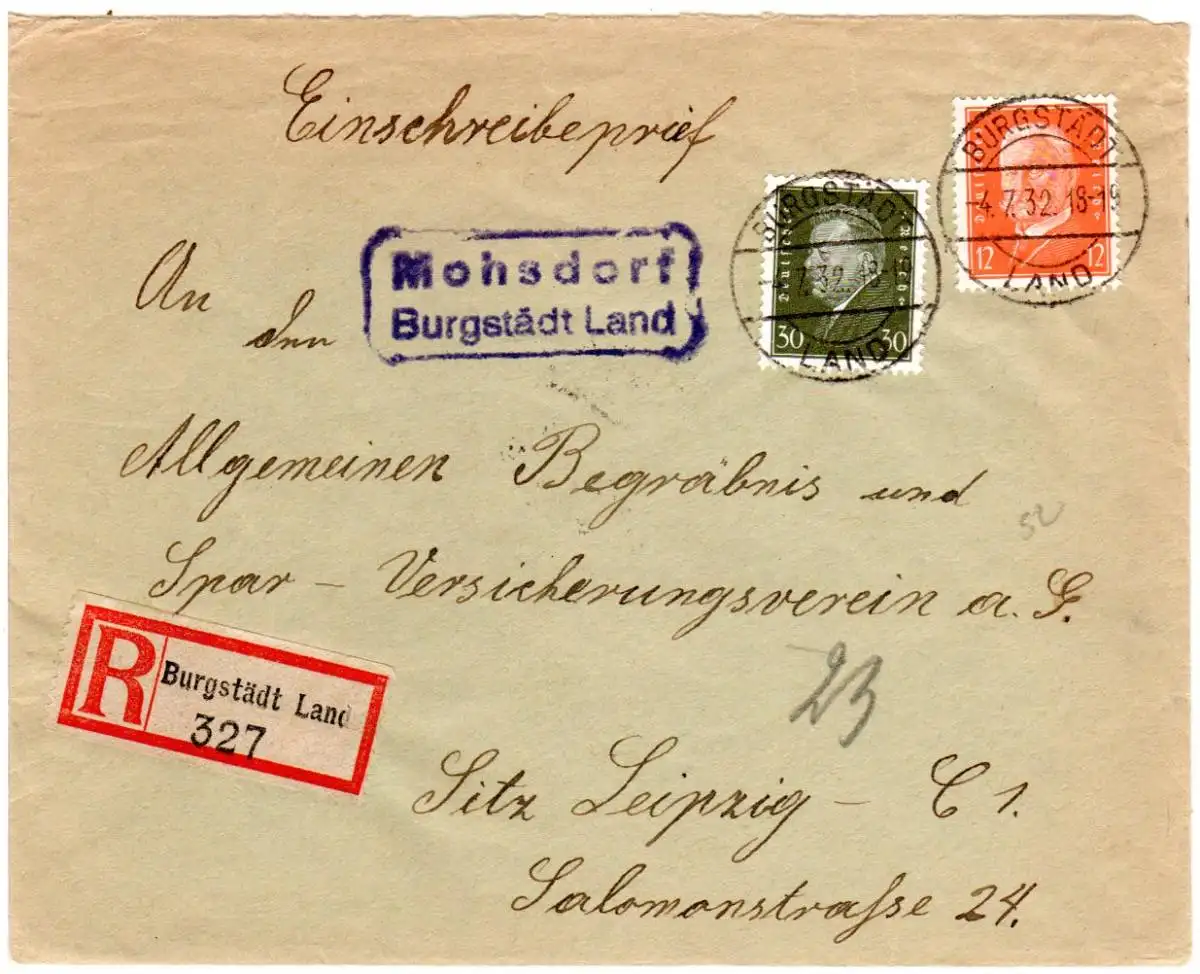 Einschreibeprief
BURGSTÄDT
-4.7.32.18-19
LAND
Deutsches Reich
12 12
BURGSTÄDT
-4.7.32.18-19
LAND
Deutsches Reich
30 30
Mohsdorf
Burgstädt Land
An
den
Allgemeinen Begräbnis und
Spar - Versicherungsverein a. G.
52
23
R Burgstädt Land
327
Sitz Leipzig - C 1.
Salomonstraße 24.